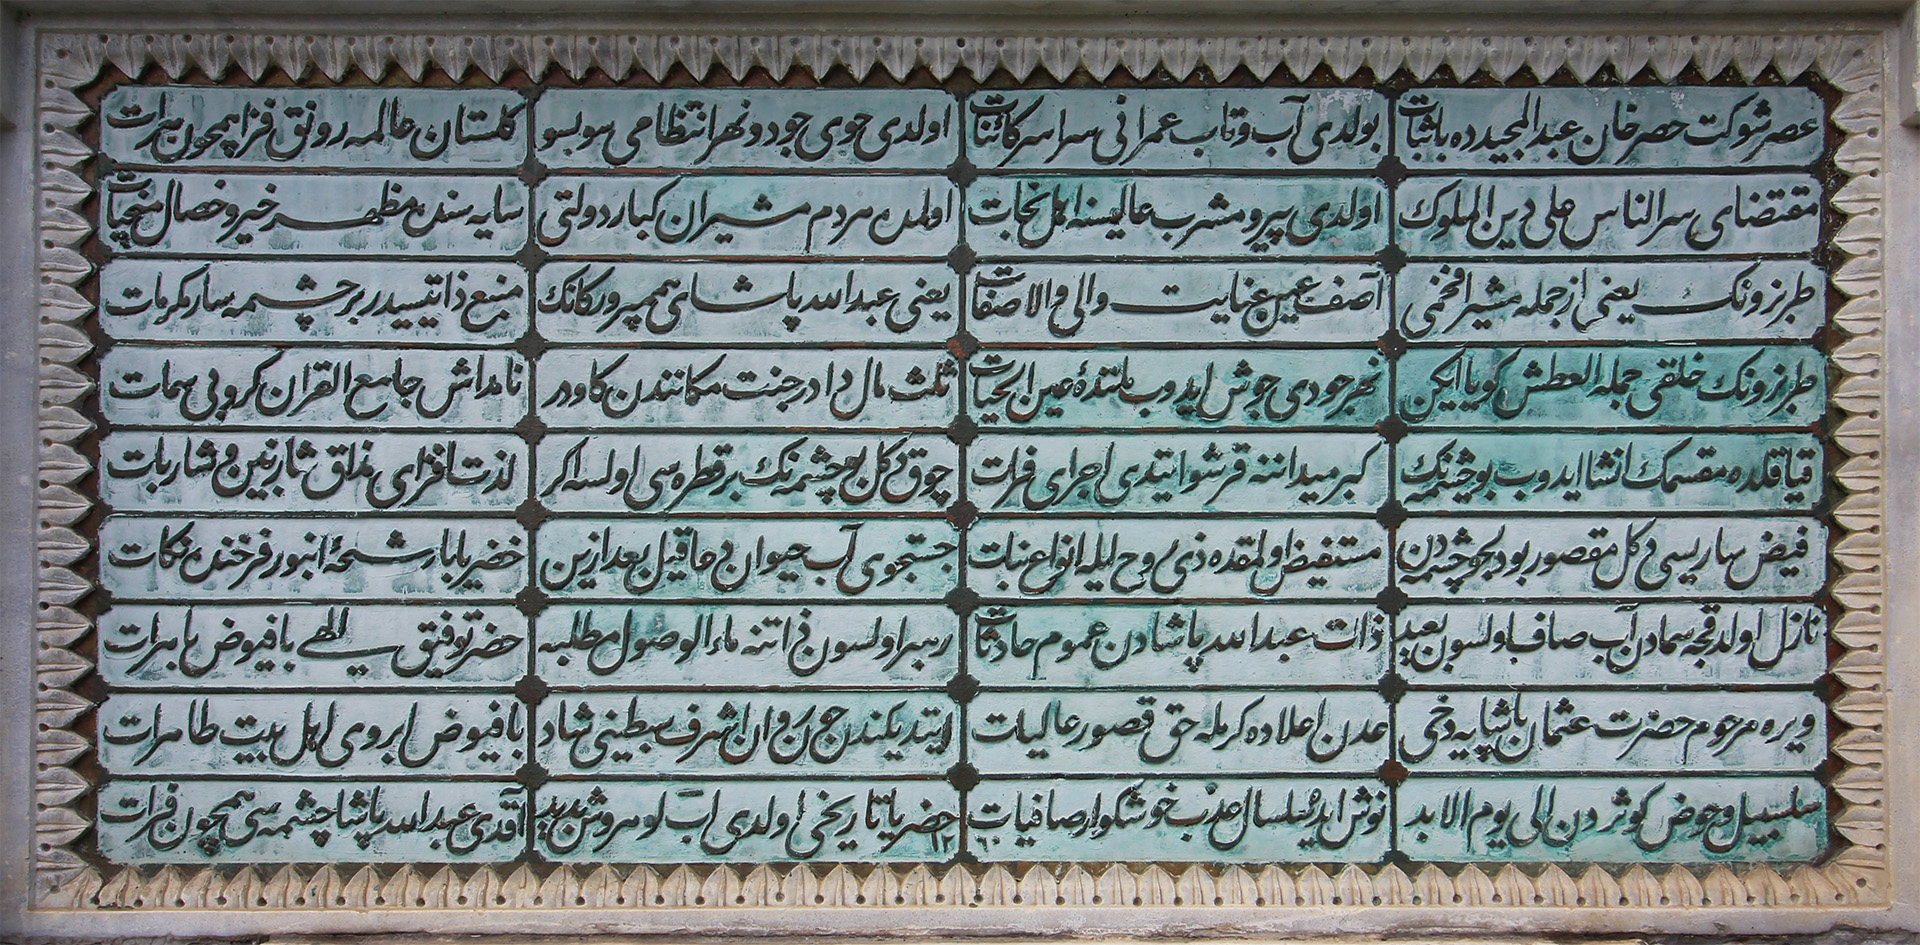 عصر شوكت حصر خان عبد المجيدده باثبات
بولدى آب و تاب عمرانى سراسر كائنات
اولدى جوى جود و نهر انتظامى سوبسو
كلستان عالمه رونق فزا همچون هرات
مقتضاى سر الناس على دين الملوك
اولدى پيرو مشرب عاليسنه اهل نجات
اولدى مردم مشيران كبار دولتى
سايه سنده مظهر خير و خصال منجيات
طربزونك يعنى از جمله مشير افخمى
آصف عميم عنايت والى والا صفات
يعنى عبد الله پاشاى همم پرور كانك
منبع ذاتيسيدر بر چشمه سار مكرمات
طربزونك خلقى جمله العطش كويا ايكن
نهر جودى جوش ايدوب بلدۀ عين الحيات
ثلث مال دادر جنت مكانندن كاودر
نامداش جامع القران كروبى سمات
انشا ايدوب بو چشمه نك
كبر ميداننه قرشو ايتدى اجراى فرات
چوق دكل بو چشمه نك بر قطره سى اولسه اكر
لذت افزاى مذاق شاربين و شاربات
فيض ساريسى دكل مقصور بو دلجو چشمه دن
مستفيض اولمقده ذى روح ايله انواع نبات
جستجوى آب حيوان دحاقيل بعد ازين
خضر يا بار شحۀ انبور فرخنده نكات
نازل اولدقجه سمادن آب صاف اولسون بعيد
ذات عبد الله پاشادن عموم حادثات
رهبر اولسون ذاتنه ماء الوصول مطلبه
حضر توفيق الهى با فيوض باهرات
ويره مرحوم حضرت عثمان پاشايه دخى
عدن اعلاده كرمله حق قصور عاليات
ايتديكندن جون روان اشرف سبطينى شاد
با فيوض ابروى اهل بيت طاهرات
سلسبيل و حوض كوثردن الى يوم الابد
نوش ايده سلسال عذب خوشكوار صافيات
خضريا تاريخى اولدى اب لوهر وش بديد
آقدى عبد الله پاشا چشمه سى همچون فرات
١٢٦٠